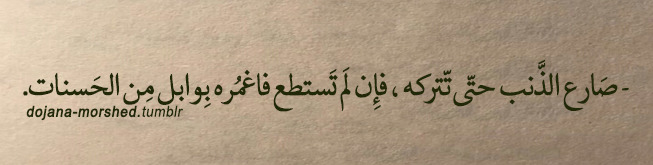 - صَارع الذَّنب حتّى تّتركه ، فإِن لَم تَستطع فاغمُره بِوابل مِن الحَسنات.
dojana-morshed.tumblr